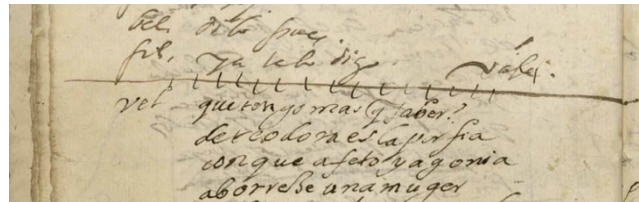 bel. dilo pues
fil. ya telo digo vase.
vel que tengo mas q saber?
de teodora es la porfia
con que afeto y agonia
aborrese una muger